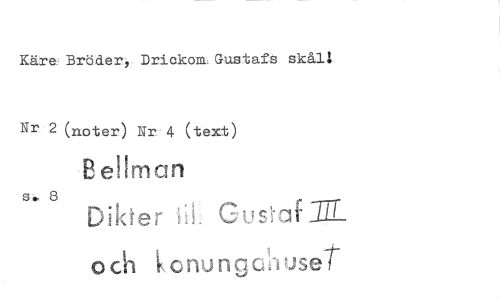 Käre Bröder, Drickom Gustafs skål!
Nr 2 (noter) Nr 4 (text)
Bellman
s. 8
Dikter till Gustaf III
och konungahuset